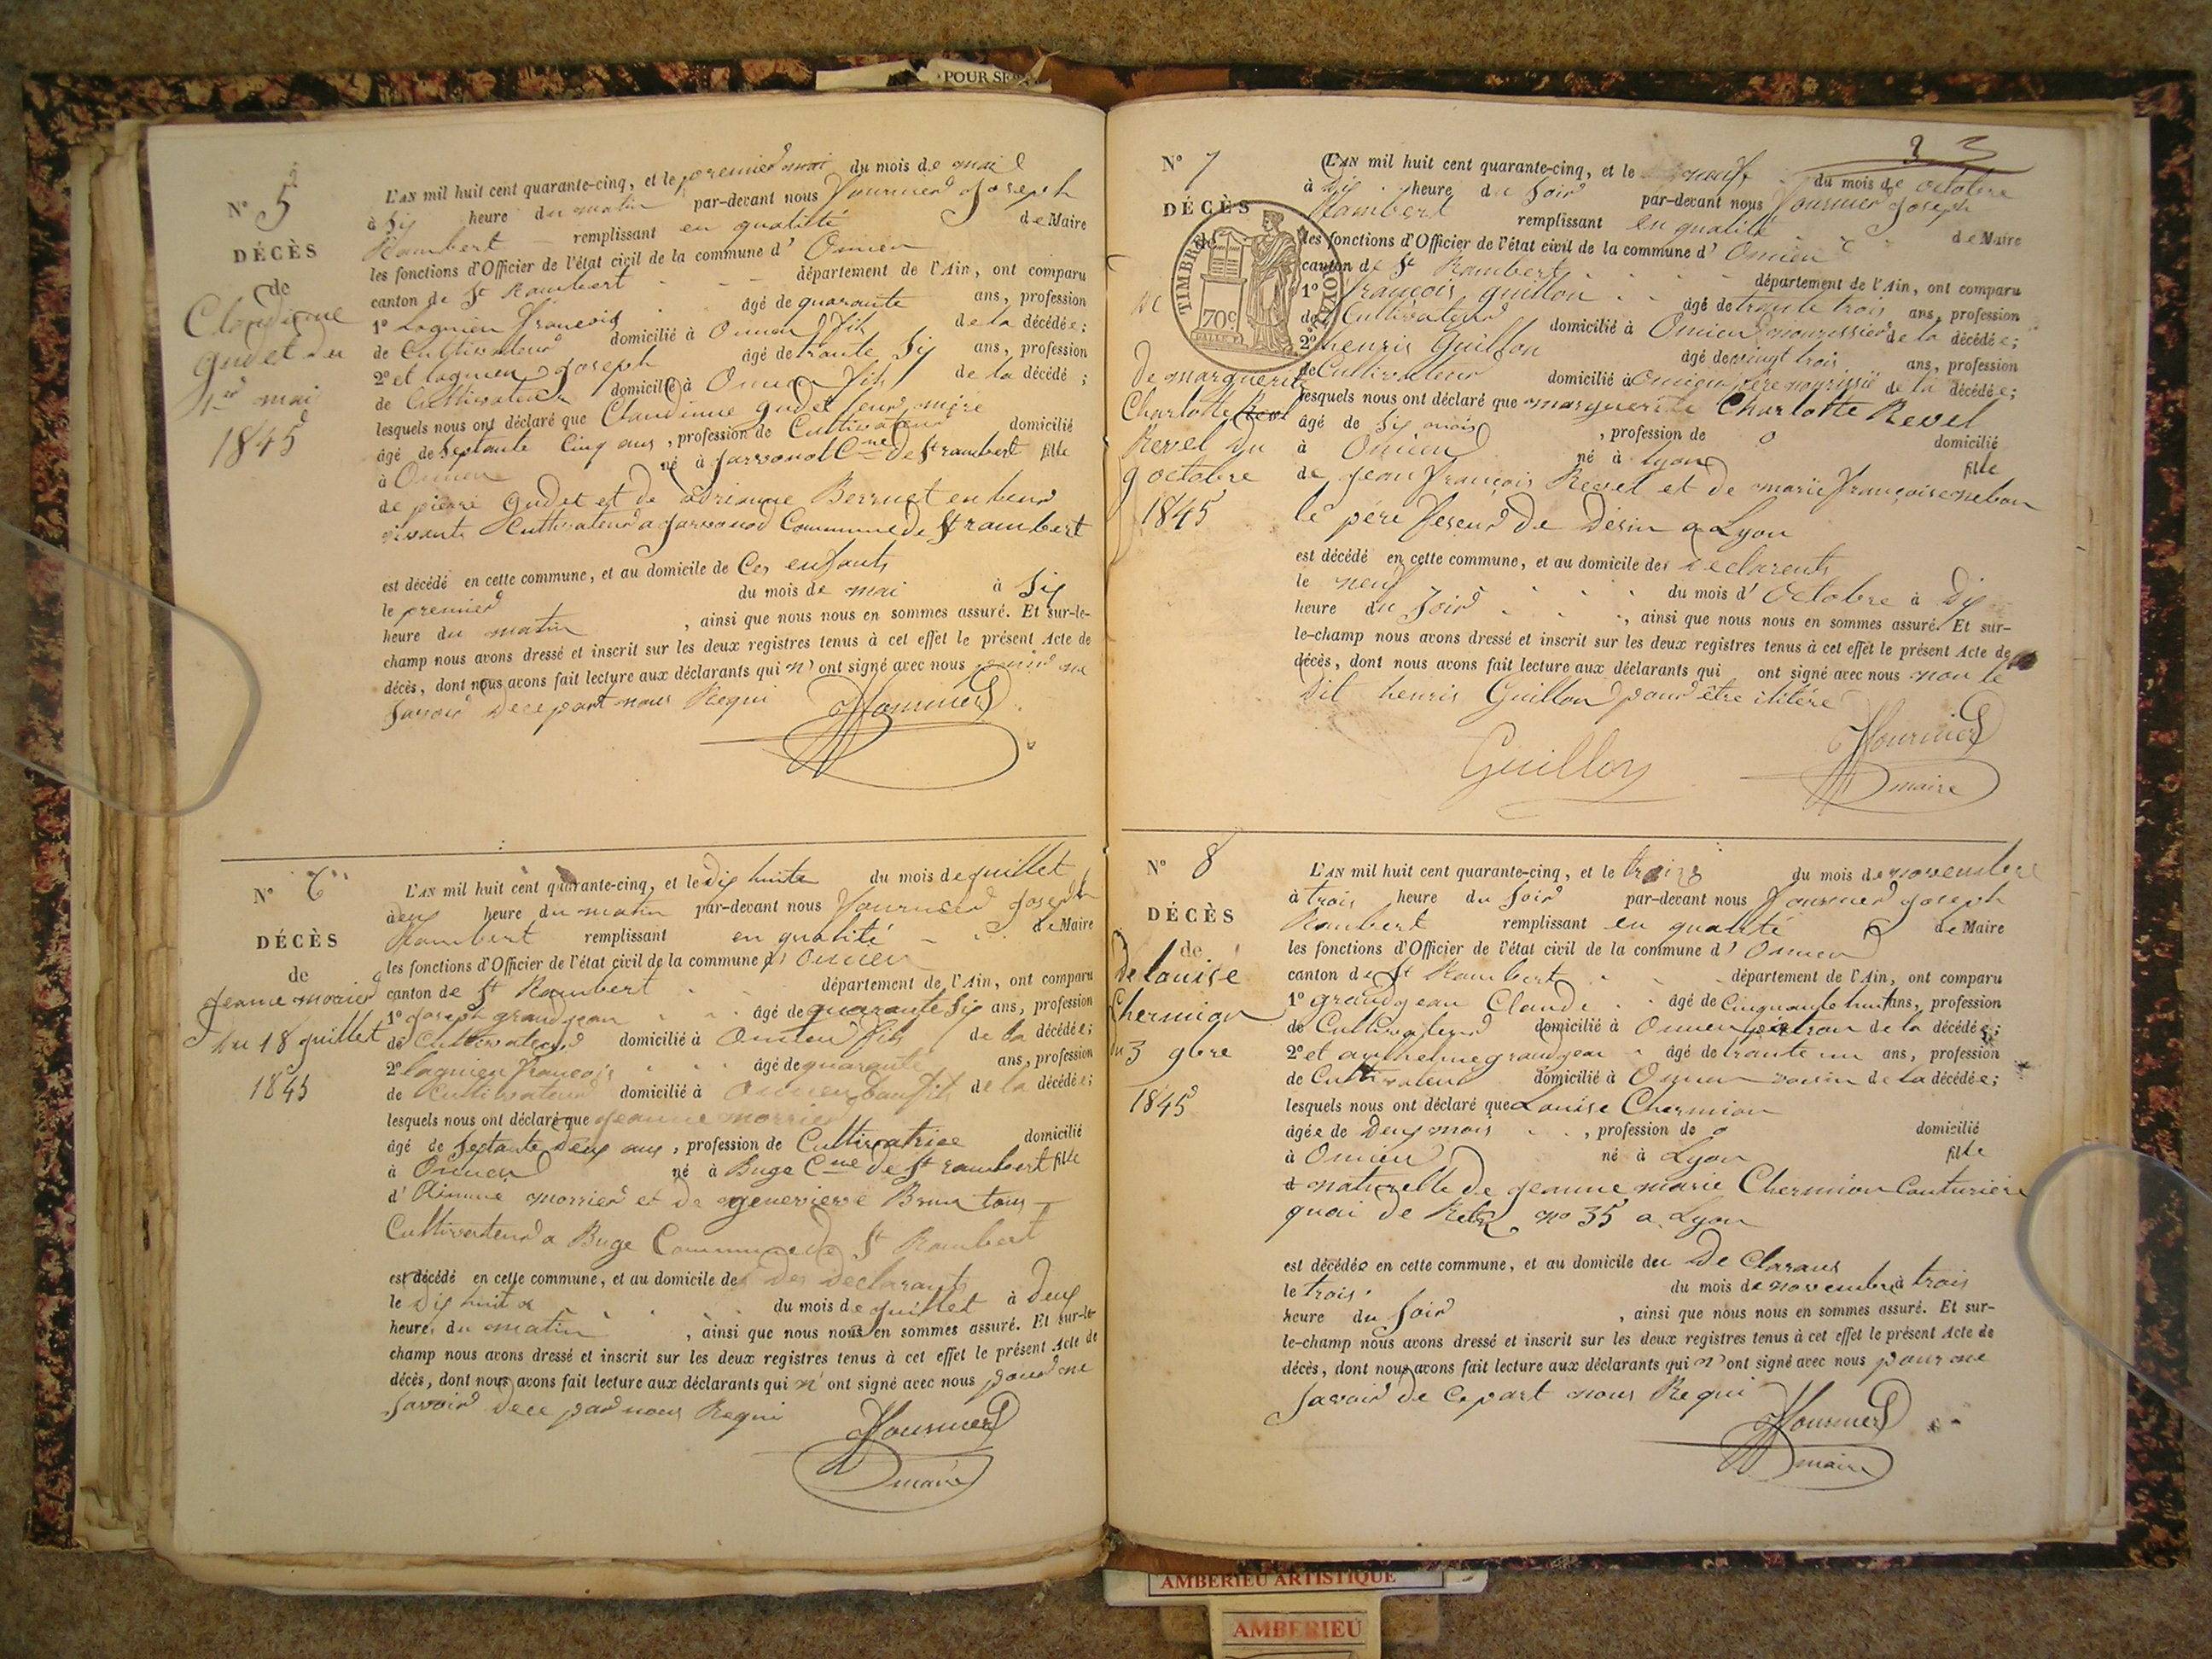 POUR SE
N° 5
DÉCÈS
de
Claudinne
gudet du
1er mai
1845
L'AN mil huit cent quarante-cinq, et le premier mai du mois de mai
à Six heure du matin par-devant nous fournier Joseph
Rambert remplissant en qualité de Maire
les fonctions d'Officier de l'état civil de la commune d' Oncieu
canton de St Rambert département de l'Ain, ont comparu
1° Lagnieu françois âgé de quarante ans, profession
de Cultivateur domicilié à Oncieu fils de la décédée;
2° et lagnieu Joseph âgé de trante Six ans, profession
de Cultivateur domicilié à Oncieu fils de la décédé ;
lesquels nous ont déclaré que Claudinne gudet leur mère
âgé de Septante Cinq ans, profession de Cultivateur domicilié
à Oncieu né à Cne de St rambert fille
de pierre gudet et de
Cultivateur a Commune de St rambert
est décédé en cette commune, et au domicile de Ces enfants
le premier du mois de mai à Six
heure du matin , ainsi que nous nous en sommes assuré. Et sur-le-
champ nous avons dressé et inscrit sur les deux registres tenus à cet effet le présent Acte de
décès, dont nous avons fait lecture aux déclarants qui n'ont signé avec nous pour ne
Savoir dece part nous Requi
Fournier
N° 6
DÉCÈS
de
Jeanne morier
du 18 Juillet
1845
L'AN mil huit cent quarante-cinq, et le dix huite du mois de Juillet
à deux heure du matin par-devant nous fournier Joseph
Rambert remplissant en qualité de Maire
les fonctions d'Officier de l'état civil de la commune d' Oncieu
canton de St Rambert département de l'Ain, ont comparu
1° Joseph grandjean âgé de quarante Six ans, profession
de Cultivateur domicilié à Oncieu fils de la décédée;
2° lagnieu françois âgé de quarante ans, profession
de Cultivateur domicilié à Oncieu de la décédée;
lesquels nous ont déclaré que Jeanne morrier
âgé de Septante deux ans, profession de Cultivatrice domicilié
à Oncieu né à Buge Cne de St rambert fille
d' morrier et de genevieve Brun tous
Cultivateur a Buge Commune de St Rambert
est décédé en cette commune, et au domicile de des declarants
le dix huit du mois de Juillet à deux
heure du matin , ainsi que nous nous en sommes assuré. Et sur-le-
champ nous avons dressé et inscrit sur les deux registres tenus à cet effet le présent Acte de
décès, dont nous avons fait lecture aux déclarants qui n'ont signé avec nous pour ne
Savoir dece par nous Requi
Fournier
maire
23
N° 7
DÉCÈS
de
TIMBRE ROYAL
70c
de marguerite
Charlotte Revol
Revel du
9 octobre
1845
L'AN mil huit cent quarante-cinq, et le neuf du mois de octobre
à dix heure du Soir par-devant nous fournier Joseph
Rambert remplissant en qualité de Maire
les fonctions d'Officier de l'état civil de la commune d' Oncieu
canton de St Rambert département de l'Ain, ont comparu
1° françois guillon âgé de trante trois ans, profession
de Cultivateur domicilié à Oncieu nourissier de la décédée;
2° henris Guillon âgé de vingt trois ans, profession
de Cultivateur domicilié à Oncieu de la décédée;
lesquels nous ont déclaré que marguerite Charlotte Revel
âgé de Six mois , profession de 0 domicilié
à Oncieu né à Lyon fille
de Jean françois Revel et de marie françoise
le père de Désin a Lyon
est décédé en cette commune, et au domicile des declarents
le neuf du mois d' Octobre à dix
heure du Soir , ainsi que nous nous en sommes assuré. Et sur-
le-champ nous avons dressé et inscrit sur les deux registres tenus à cet effet le présent Acte de
décès, dont nous avons fait lecture aux déclarants qui ont signé avec nous non le
Dit henris Guillon pour être ilitéré
Guillon
Fournier
maire
N° 8
DÉCÈS
de
de louise
Chermion
du 3 9bre
1845
L'AN mil huit cent quarante-cinq, et le trois du mois de novembre
à trois heure du Soir par-devant nous fournier Joseph
Rambert remplissant en qualité de Maire
les fonctions d'Officier de l'état civil de la commune d' Oncieu
canton de St Rambert département de l'Ain, ont comparu
1° grandjean Claude âgé de Cinquante huit ans, profession
de Cultivateur domicilié à Oncieu patron de la décédée;
2° et anthelme grandjean âgé de trante un ans, profession
de Cultivateur domicilié à Oncieu voisin de la décédée;
lesquels nous ont déclaré que Louise Chermion
âgée de Deux mois , profession de 0 domicilié
à Oncieu né à Lyon fille
naturelle de Jeanne marie Chermion Couturière
quai de Retz no 35 a Lyon
est décédée en cette commune, et au domicile du De Clarans
le trois du mois de novembre à trois
heure du Soir , ainsi que nous nous en sommes assuré. Et sur-
le-champ nous avons dressé et inscrit sur les deux registres tenus à cet effet le présent Acte de
décès, dont nous avons fait lecture aux déclarants qui n'ont signé avec nous pour ne
Savoir de Ce part nous Requi
Fournier
maire
AMBERIEU ARTISTIQUE
AMBERIEU